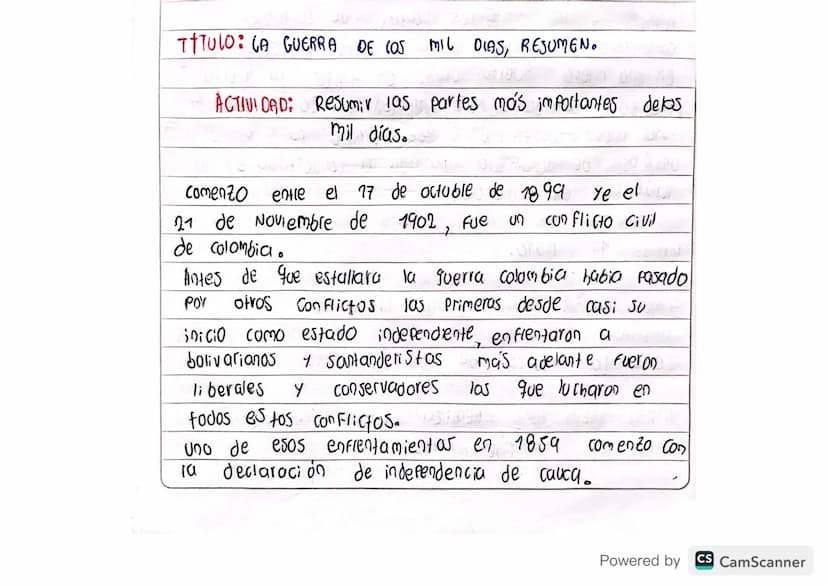 TÍTULO: LA GUERRA DE LOS MIL DIAS, RESUMEN.
ACTIVIDAD: Resumir las partes más importantes delos
mil días.
comenzo entre el 17 de octubre de 1899 ye el
21 de Noviembre de 1902, Fue un conflicto civil
de colombia.
Antes de que estallara la guerra colombia habia pasado
por otros conflictos las primeras desde casi su
inicio como estado independiente, enfrentaron a
bolivarianos y santanderistas más adelante fueron
liberales y conservadores los que lucharon en
todos estos conflictos.
uno de esos enfrentamientos en 1859 comenzo con
la declaración de independencia de cauca.
Powered by CS CamScanner